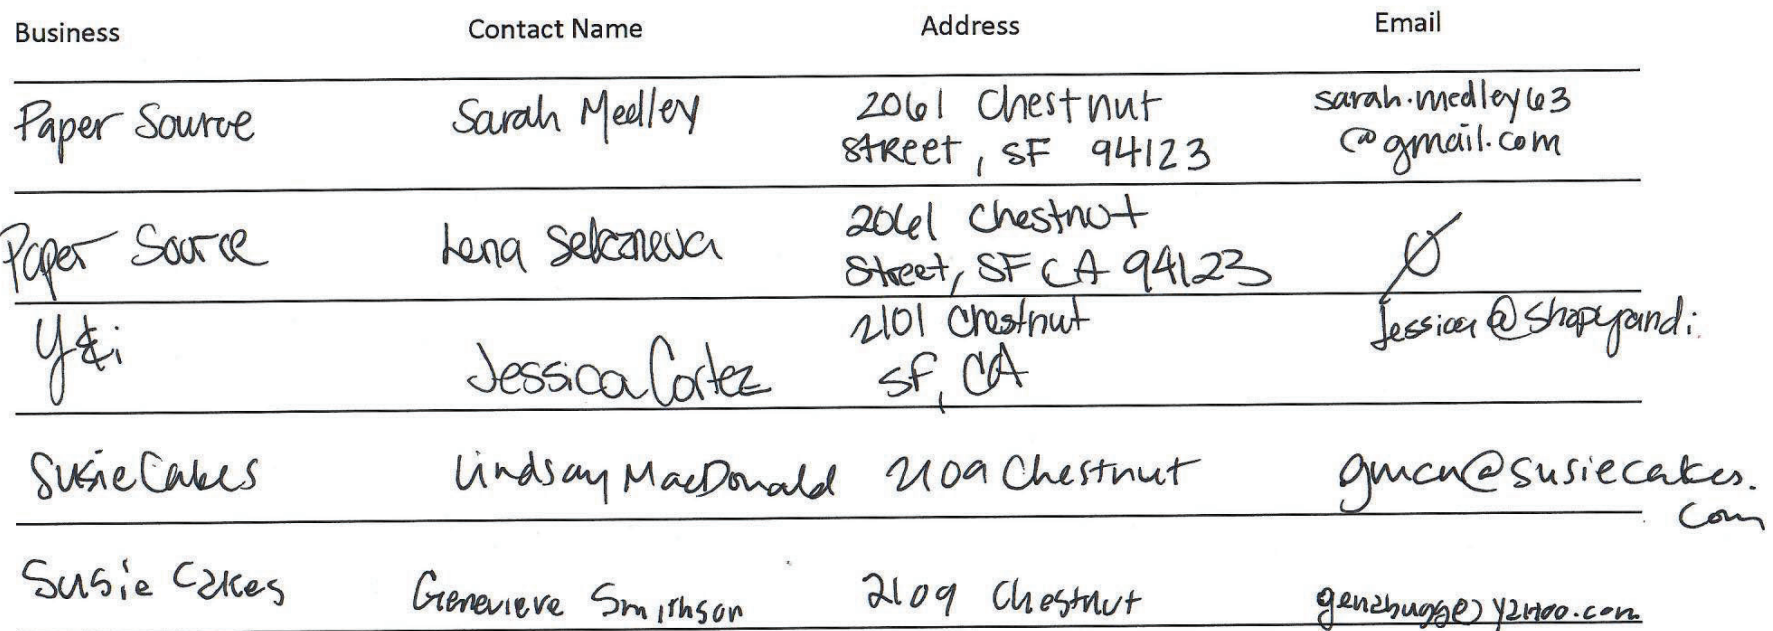 Business Contact Name Address Email
Paper Source Sarah Medley 2061 Chestnut sarah.medley63
Street, SF 94123 @gmail.com
Paper Source Lena 2061 Chestnut Ø
Street, SF CA 94123
Y&i Jessica Cortez 2101 Chestnut Jessica@shopyandi
SF, CA
SusieCakes Lindsay MacDonald 2109 Chestnut gmcn@susiecakes.
com
Susie Cakes Genevieve Smithson 2109 Chestnut